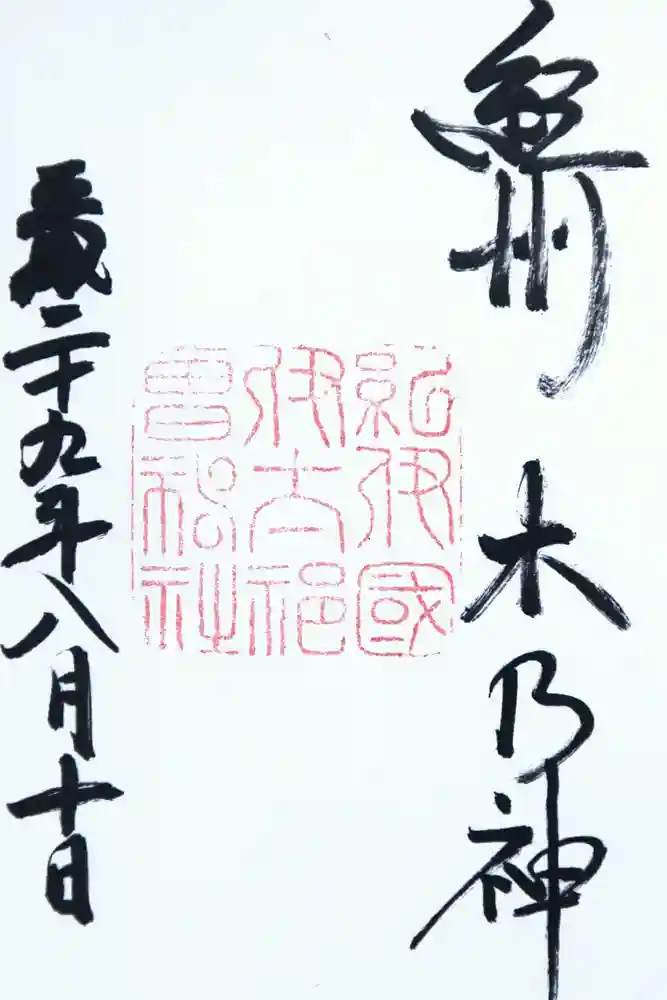 紀州 木乃神
紀伊國
伊太祁
曽神社
平成二十九年八月十日